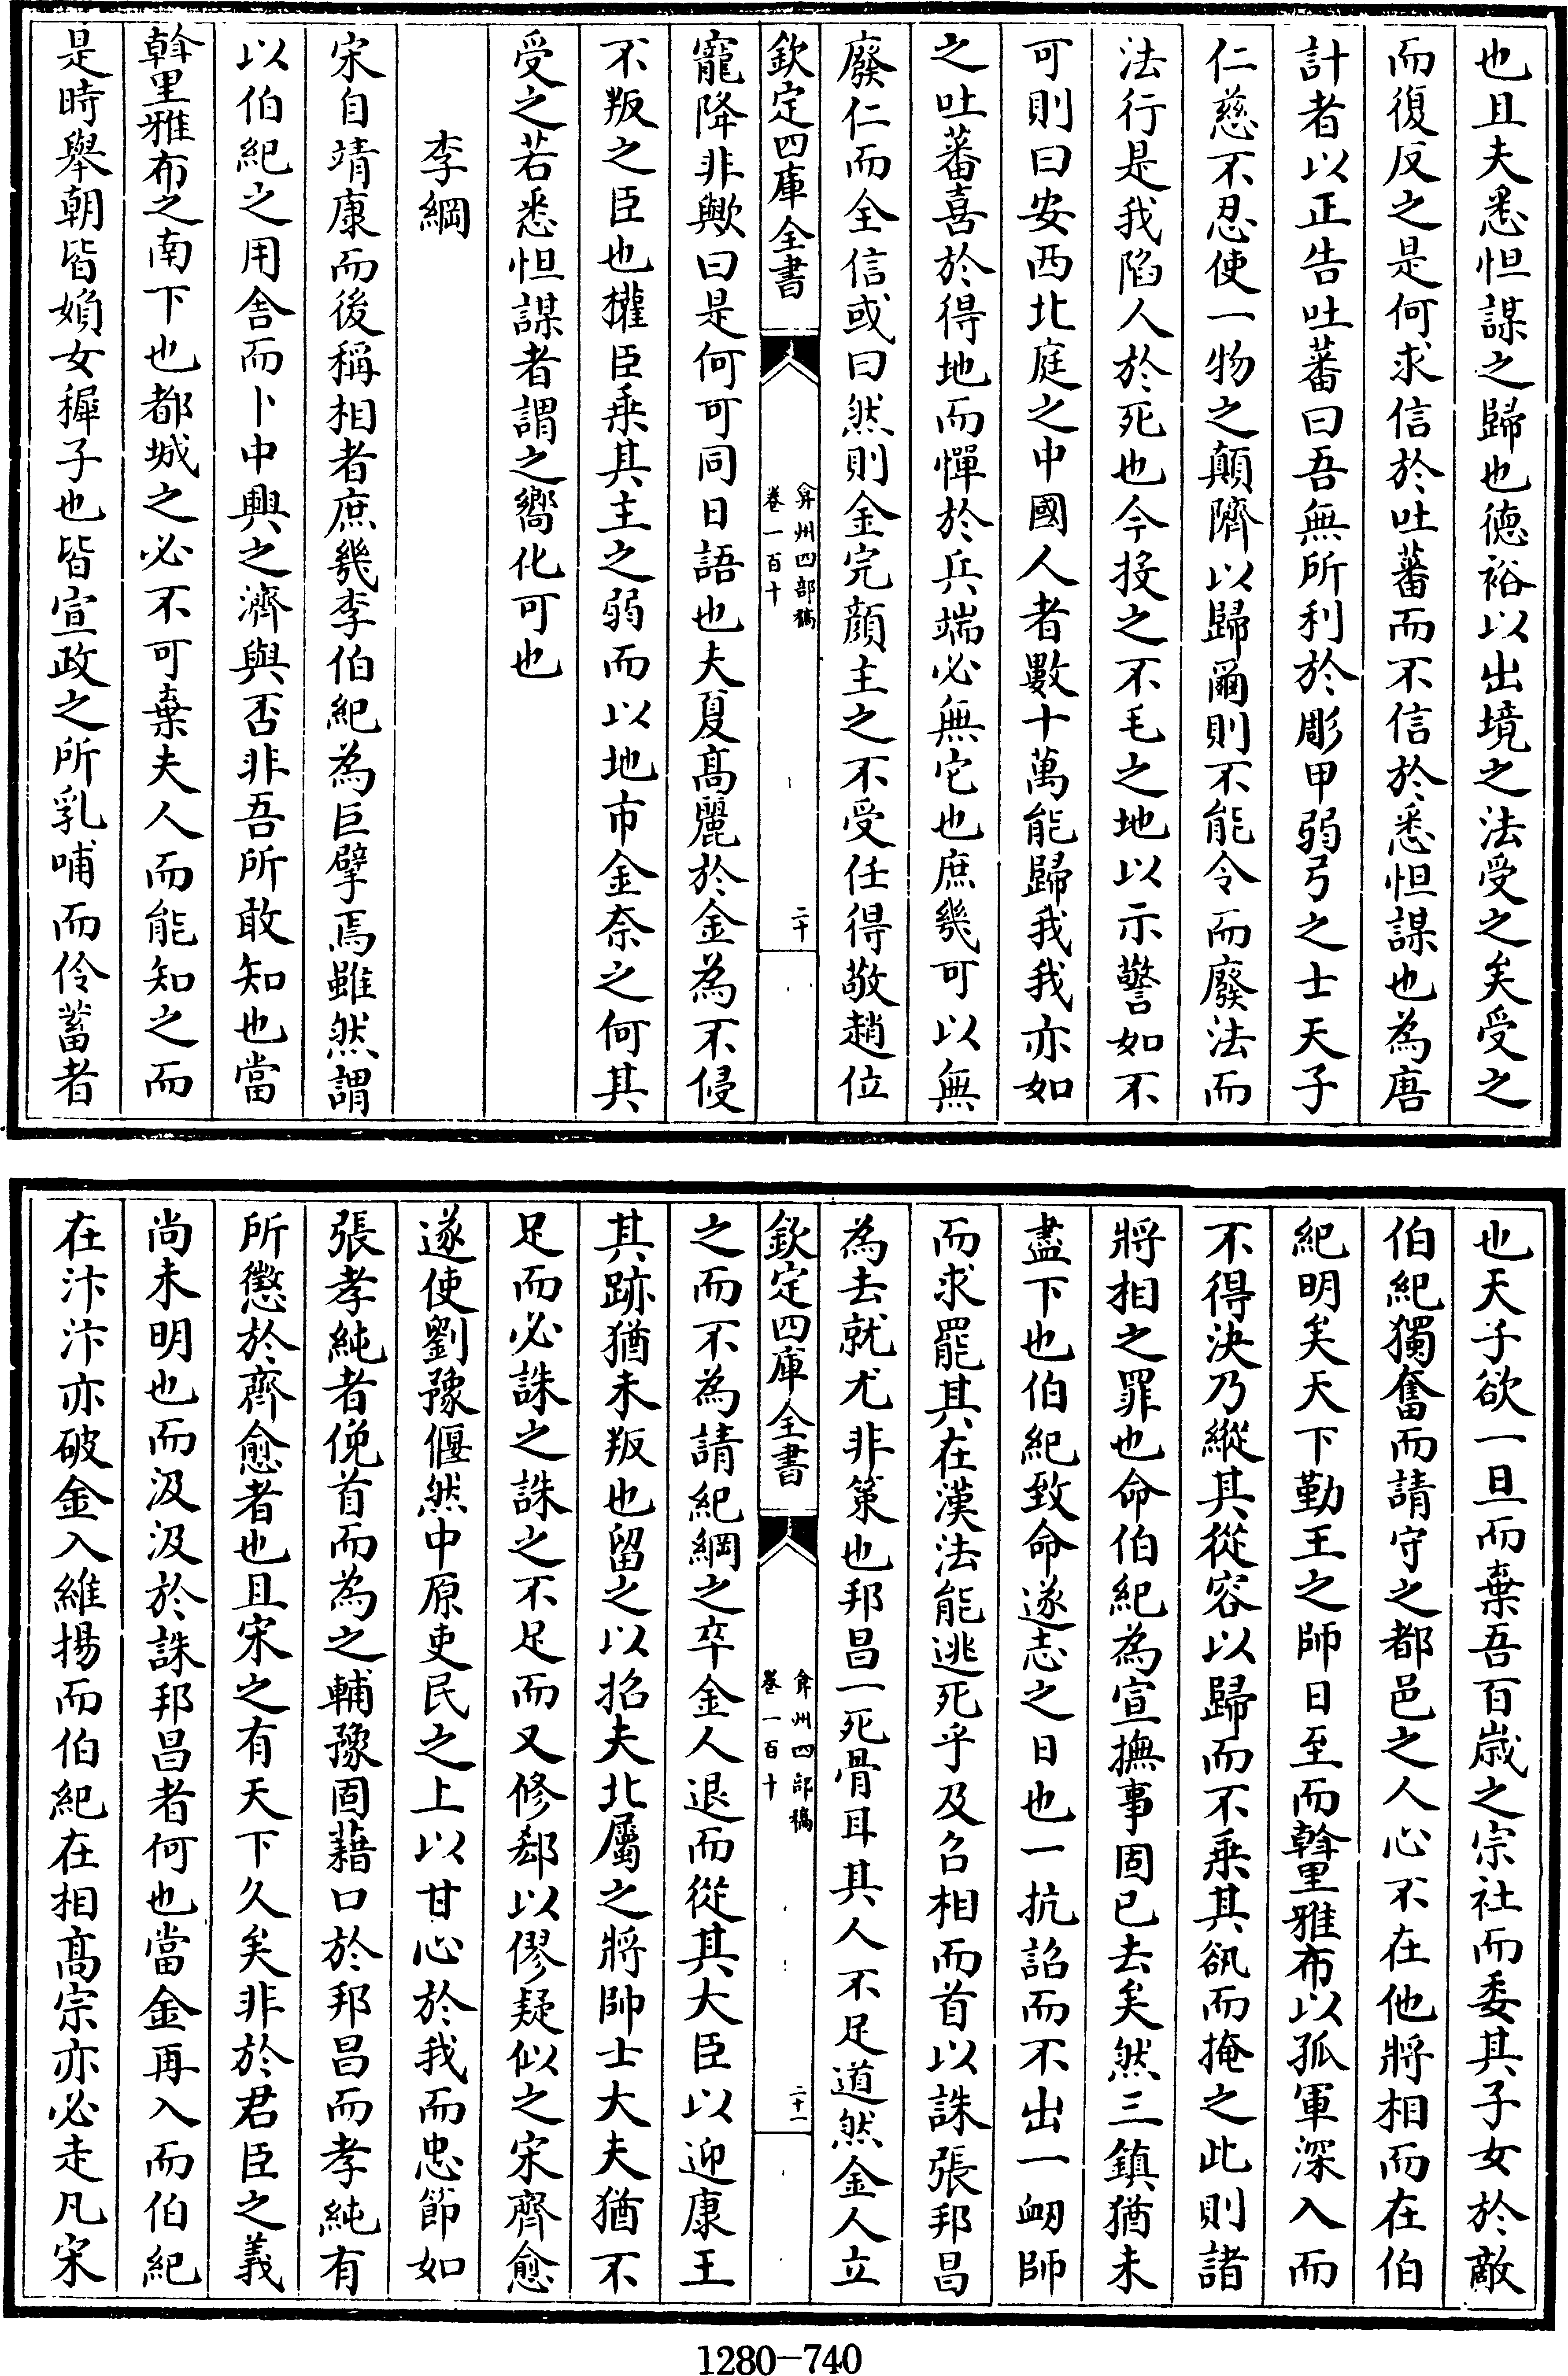 也且夫悉怛謀之歸也徳裕以出境之法受之矣受之
而復反之是何求信於吐蕃而不信於悉怛謀也為唐
計者以正告吐蕃曰吾無所利於彫甲弱弓之士天子
仁慈不忍使一物之顛隮以歸爾則不能令而廢法而
法行是我陷人於死也今投之不毛之地以示警如不
可則曰安西北庭之中國人者數十萬能歸我我亦如
之吐蕃喜於得地而憚於兵端必無它也庶幾可以無
廢仁而全信或曰然則金完顔主之不受任得敬趙位
欽定四庫全書
弇州四部稿
卷一百十
二十
寵降非歟曰是何可同日語也夫夏髙麗於金為不侵
不叛之臣也權臣乗其主之弱而以地市金奈之何其
受之若悉怛謀者謂之嚮化可也
李綱
宋自靖康而後稱相者庶幾李伯紀為巨擘焉雖然謂
以伯紀之用舎而卜中興之濟與否非吾所敢知也當
斡里雅布之南下也都城之必不可棄夫人而能知之而
是時舉朝皆婦女穉子也皆宣政之所乳哺而伶蓄者
也天子欲一旦而棄吾百歳之宗社而委其子女於敵
伯紀獨奮而請守之都邑之人心不在他將相而在伯
紀明矣天下勤王之師日至而斡里雅布以孤軍深入而
不得決乃縱其從容以歸而不乗其瓻而掩之此則諸
將相之罪也命伯紀為宣撫事固已去矣然三鎮猶未
盡下也伯紀致命遂志之日也一抗詔而不出一衂師
而求罷其在漢法能逃死乎及召相而首以誅張邦昌
為去就尤非策也邦昌一死骨耳其人不足道然金人立
欽定四庫全書
弇州四部稿
卷一百十
二十一
之而不為請紀綱之卒金人退而從其大臣以迎康王
其跡猶未叛也留之以招夫北屬之將帥士大夫猶不
足而必誅之誅之不足而又修郄以僇疑似之宋齊愈
遂使劉豫偃然中原吏民之上以甘心於我而忠節如
張孝純者俛首而為之輔豫固藉口於邦昌而孝純有
所懲於齊愈者也且宋之有天下久矣非於君臣之義
尚未明也而汲汲於誅邦昌者何也當金再入而伯紀
在汴汴亦破金入維揚而伯紀在相髙宗亦必走凡宋
1280-740